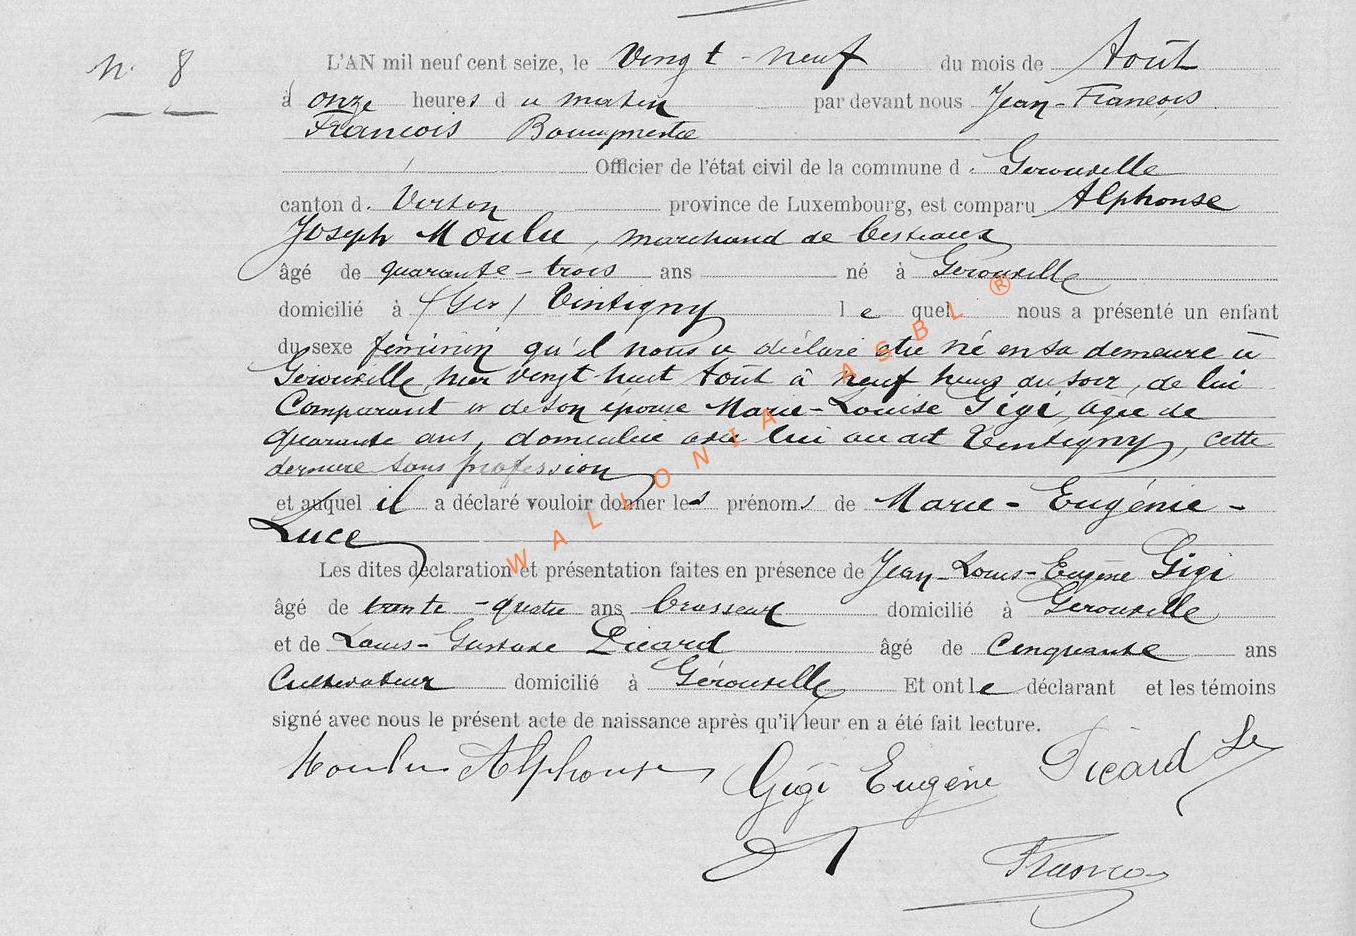 N° 8
L'AN mil neuf cent seize, le Vingt-neuf du mois de Août
à onze heures du matin par devant nous Jean-François,
François
Officier de l'état civil de la commune d. Gérouville
canton d. Virton province de Luxembourg, est comparu Alphonse
Joseph Moulu, marchand de bestiaux
âgé de quarante-trois ans né à Gérouville
domicilié à Vintigny lequel nous a présenté un enfant
du sexe féminin qu'il nous a déclaré être né en sa demeure à
Gérouville, hier vingt-huit Août à neuf heures du soir, de lui
Comparant et de son épouse Marie-Louise Gigi, âgée de
quarante ans, domiciliée avec lui au dit Vintigny, cette
dernière sans profession
et auquel il a déclaré vouloir donner les prénoms de Marie-Eugénie-
Luce
Les dites déclaration et présentation faites en présence de Jean-Louis-Eugène Gigi
âgé de trente-quatre ans brasseur domicilié à Gérouville
et de Louis-Gustave Picard âgé de Cinquante ans
Cultivateur domicilié à Gérouville Et ont le déclarant et les témoins
signé avec nous le présent acte de naissance après qu'il leur en a été fait lecture.
Moulu Alphonse Gigi Eugène Picard
WALLONIA ASBL ®